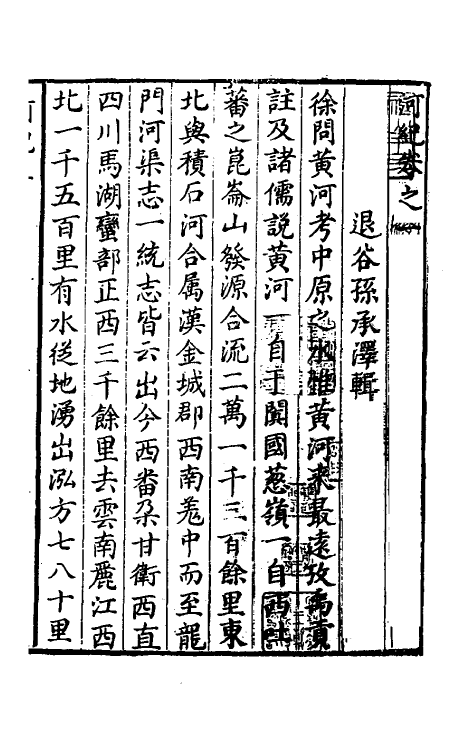 河紀卷之一
退谷孫承澤輯
徐問黃河考中原之水惟黃河來最遠攷禹貢
註及諸儒說黃河一自于闐國蔥嶺一自西吐
蕃之崑崙山發源合流二萬一千三百餘里東
北與積石河合属漢金城郡西南羗中而至龍
門河渠志一統志皆云出今西畨朶甘衛西直
四川馬湖蠻部正西三千餘里去雲南麗江西
北一千五百里有水從地湧出泓方七八十里